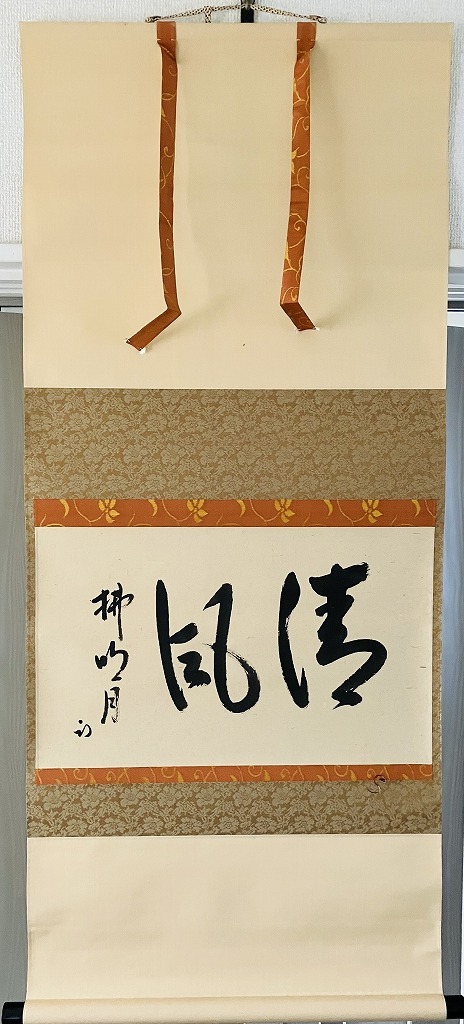 清風
拂明月